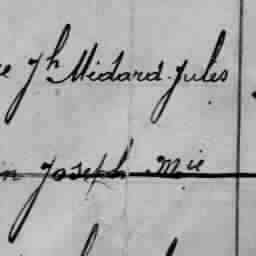 Jh Midard Jules
Joseph Mie